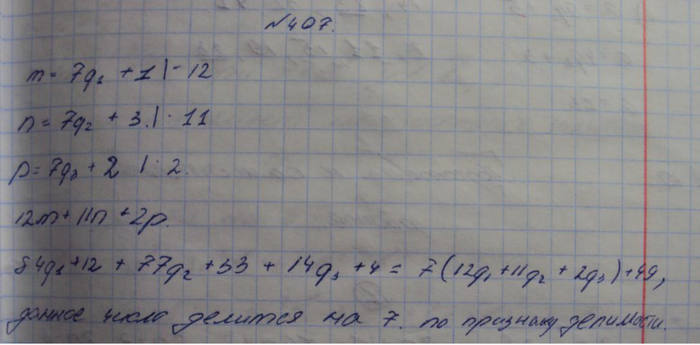 №407.
m = 7q₁ + 1 | · 12
n = 7q₂ + 3 | · 11
p = 7q₃ + 2 | · 2
12m + 11n + 2p.
84q₁ + 12 + 77q₂ + 33 + 14q₃ + 4 = 7(12q₁ + 11q₂ + 2q₃) + 49,
данное число делится на 7. по признаку делимости.